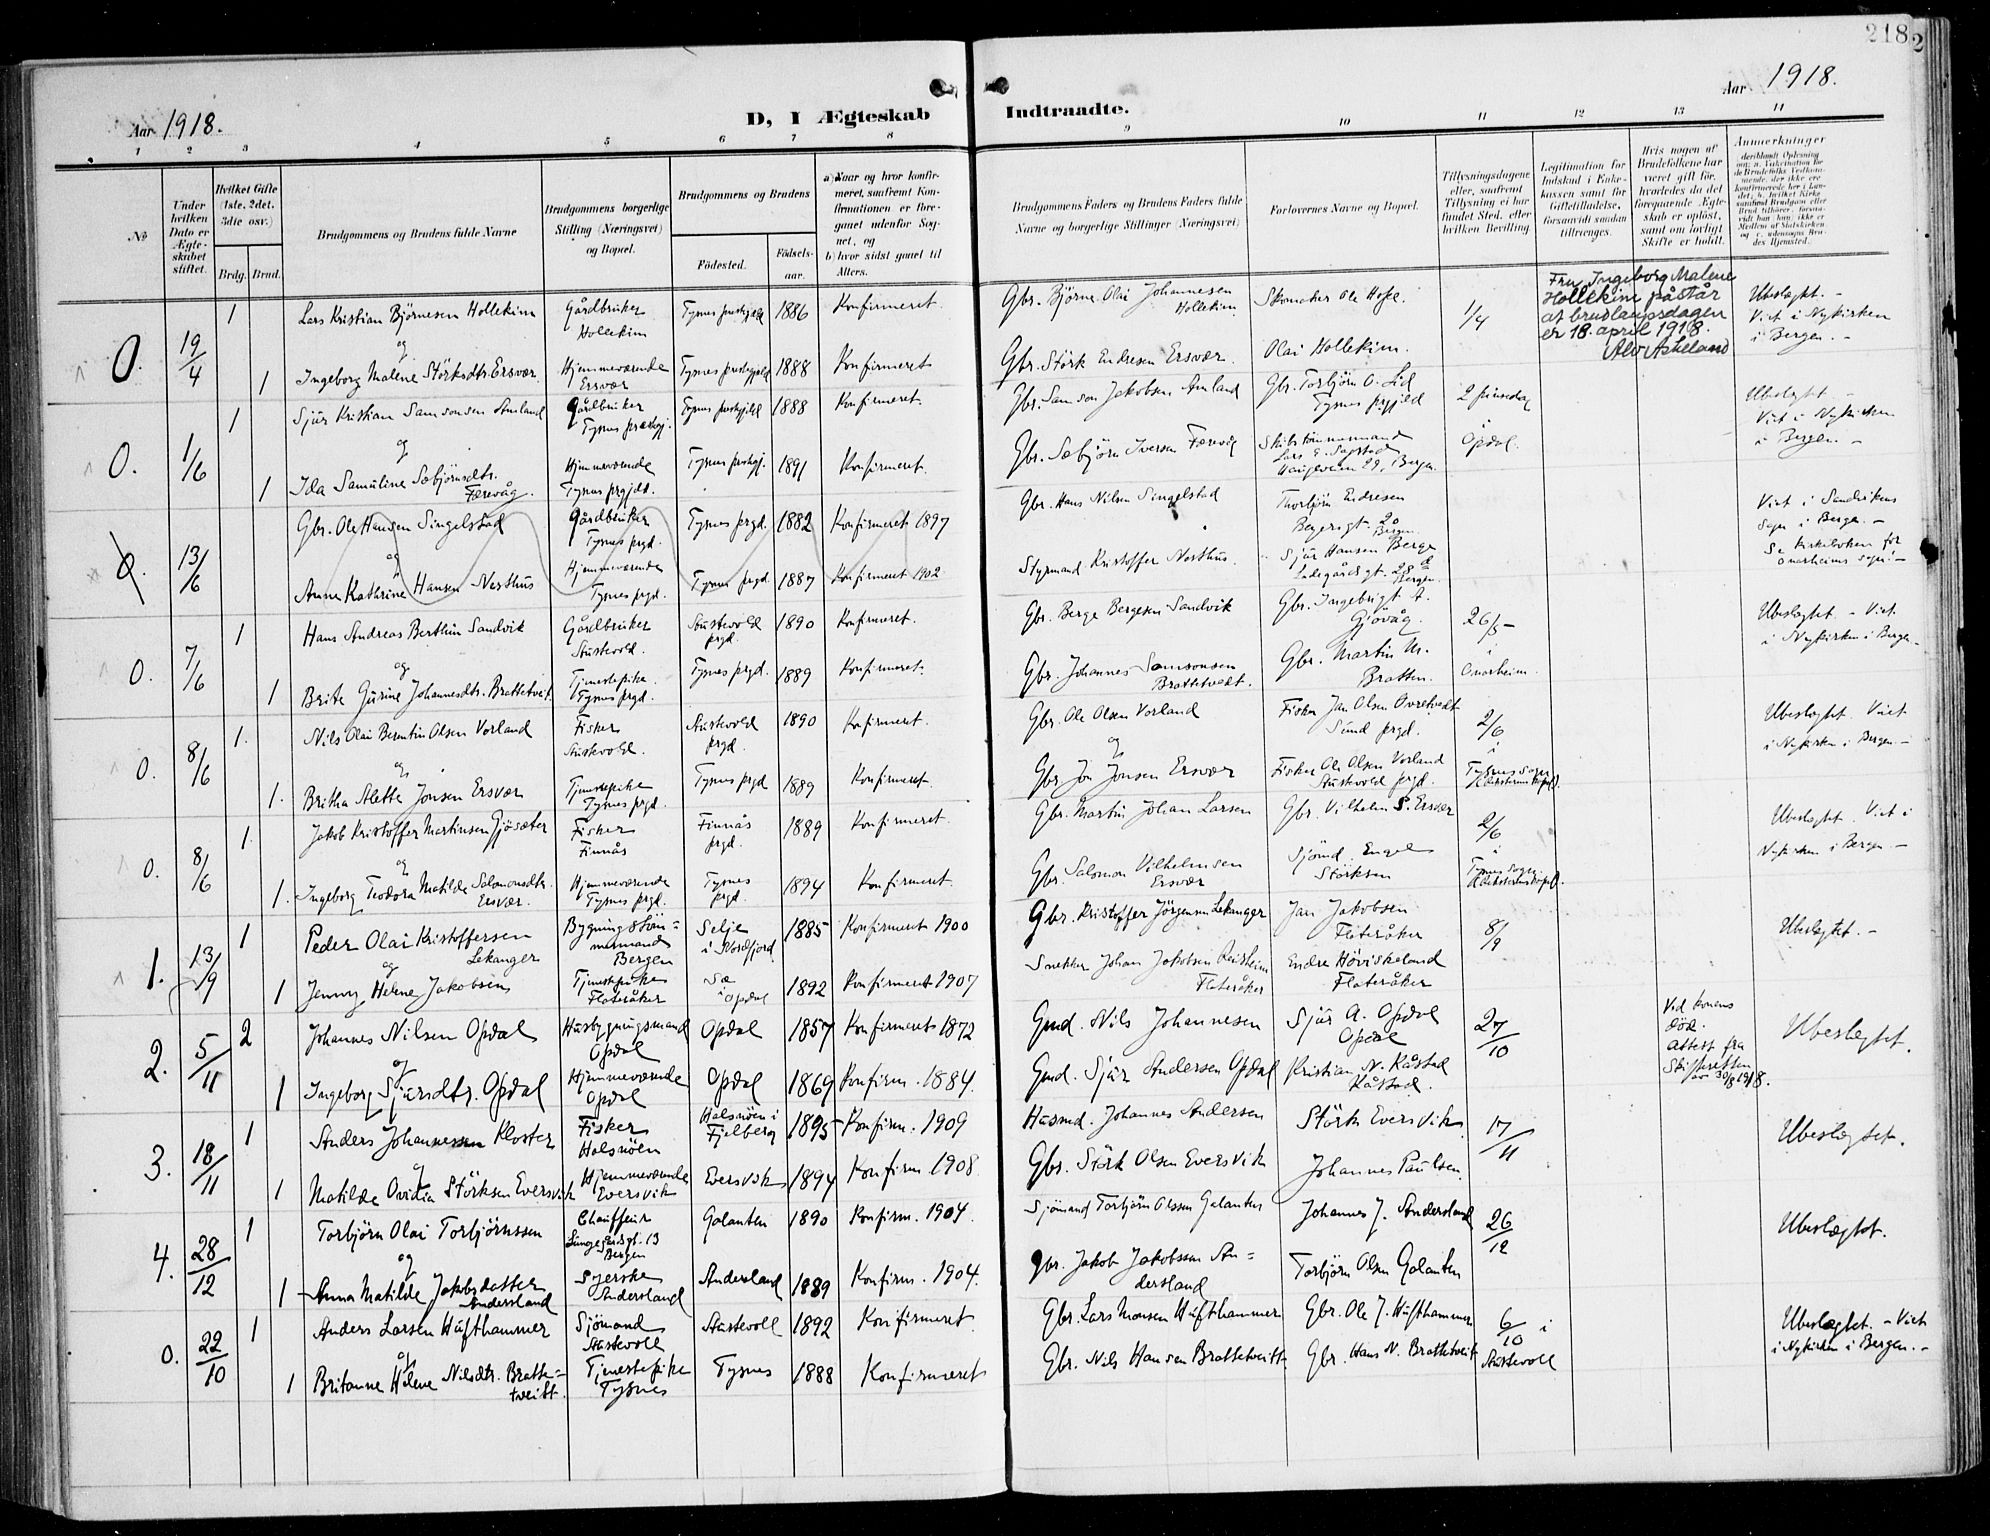 218
Aar 1918.
D, I Ægteskab Indtraadte.
Aar 1918.
1 2 3 4 5 6 7 8 9 10 11 12 13 14
No
Under hvilken Dato er Ægteskabet stiftet.
Hvilket Gifte (1ste, 2det, 3die osv.)
Brdg. Brud.
Brudgommens og Brudens fulde Navne
Brudgommens borgerlige Stilling (Næringsvei) og Bopæl.
Brudgommens og Brudens
Fødested. Fødselsaar.
a) Naar og hvor konfirmeret, saafremt Konfirmationen er foregaaet udenfor Sognet, og
b) hvor sidst gaaet til Alters.
Brudgommens Faders og Brudens Faders fulde Navne og borgerlige Stillinger (Næringsvei)
Forlovernes Navne og Bopæl.
Tillysningsdagene eller, saafremt Tillysning ei har fundet Sted, efter hvilken Bevilling
Legitimation for Indskud i Enkekassen samt for Giftetilladelse, forsaavidt saadan tiltrænges.
Hvis nogen af Brudefolkene har været gift før, hvorledes da det foregaaende Ægteskab er opløst, samt om lovligt Skifte er holdt.
Anmerkninger
0. 19/4 1 Lars Kristian Björnesen Hollekim Gårdbruker Hollekim Tysnes prestgjeld 1886 Konfirmeret. Gbr. Björne Olai Johannesen Hollekim Skomaker Ole Hope. 1/4 Ubeslægtet. -
Fru Ingeborg Malene
Hollekim påstår
at brudlaupsdagen
er 18. april 1918.
Alv Askeland
Viet i Nykirken i Bergen. -
og
1 Ingeborg Malene Störksdtr. Ersvær. Hjemmeværende Ersvær Tysnes prestegjeld 1888 Konfirmeret Gbr. Störk Endresen Ersvær. Olai Hollekim.
0. 1/6 1 Sjur Kristian Samsonsen Amland Gårdbruker Tysnes prestgj. Tysnes prestgjeld 1888 Konfirmeret. Gbr. Samson Jakobsen Amland Gbr. Torbjörn O. Lid Tysnes prgjeld 2 pinsedag Opdal. Ubeslægtet - Viet i Nykirken i Bergen. -
og
1 Ida Samuline Sæbjörnsdtr. Færevåg. Hjemmeværende Tysnes prgjds. Tysnes prestgj. 1891 Konfirmeret. Gbr. Sæbjörn Iversen Færevåg Skibstömmermand Lars E. Sagstad Haugeveien 29, Bergen.
0. 13/6 Gbr. Ole Hansen Singelstad Gårdbruker Tysnes prgd. Tysnes prgd. 1882 Konfirmeret 1897 Gbr. Hans Nilsen Singelstad Thorbjörn Endresen Bergen Viet i Sandvikens Sogn i Bergen. - Se kirkeboken for Onarheims sogn! -
og
Anne Kathrine Hansen Nesthus Hjemmeværende Tysnes prgd. Tysnes prgd. 1887 Konfirmeret 1902 Styrmand Kristoffer Nesthus. Sjur Hansen Berge Ladegårdsgt. 28 Bergen.
0. 7/6 1 Hans Andreas Berthin Sandvik Gårdbruker Austevold. Austevold prgd. 1890 Konfirmeret. Gbr. Berge Bergesen Sandvik Gbr. Ingebrigt A. Gjövåg. 26/5 - i Onarheim. Ubeslægtet. - Viet i Nykirken i Bergen. -
og
1 Brite Gurine Johannesdtr. Brattetveit. Tjenestepike. Tysnes prgd. Tysnes prgd. 1889 Konfirmeret. Gbr. Johannes Samsonsen Brattetvedt. Gbr. Martin M. Bratten.
0. 8/6 1. Nils Olai Berentin Olsen Vorland Fisker Austevold. Austevold prgd. 1890 Konfirmeret. Gbr. Ole Olsen Vorland Fisker Jan Olsen Övretvedt Sund prgd. 2/6 i Tysnes sogn Ubeslægtet. Viet i Nykirken i Bergen. -
og
1. Britha Alette Jonsen Ersvær Tjenestepike Tysnes prgd. Tysnes prgd 1889 Konfirmeret. Gbr Jon Jonsen Ersvær Fisker Ole Olsen Vorland Austevold prgd.
0. 8/6 1. Jakob Kristoffer Martinsen Gjösæter Fisker Finnås Finnås prgd. 1889 Konfirmeret. Gbr. Martin Johan Larsen Gbr. Vilhelm S. Ersvær 2/6 i Tysnes sogn Ubeslægtet. Viet i Nykirken i Bergen -
og
1. Ingeborg Teodora Matilde Salomonsdtr. Ersvær. Hjemmeværende Tysnes prgd. Tysnes prgd. 1894 Konfirmeret. Gbr. Salomon Vilhelmsen Ersvær Sjömd. Engel Störksen
1. 13/9 1 Peder Olai Kristoffersen Lekanger Bygningstömmermand Bergen Selje i Nordfjord 1885 Konfirmeret 1900 Gbr. Kristoffer Jörgensen Lekanger Jan Jakobsen Flateråker 8/9 Ubeslægtet. -
og
1 Jenny Helene Jakobsen Tjenestepike Flateråker i Opdal 1892 Konfirmeret 1907 Snekker Johan Jakobsen Flateråker Endre Höviskeland Flateråker
2. 5/11 2 Johannes Nilsen Opdal Husbygningsmand Opdal Opdal 1857 Konfirmeret 1872 Gmd. Nils Johannesen Sjur A. Opdal Opdal 27/10 Ved konens död. Attest fra Skifteretten av 30/8 1918. Ubeslægtet.
og
1 Ingeborg Sjursdtr. Opdal Hjemmeværende Opdal Opdal 1869 Konfirm. 1884. Gmd. Sjur Andersen Opdal Kristian N. Kåstad Kåstad.
3. 18/11 1 Anders Johannessen Kloster Fisker Halsnöen Halsnöen i Fjelberg 1895 Konfirm. 1909 Husmd. Johannes Andersen Störk Eversvik 17/11 Ubeslægtet.
og
1 Matilde Ovidia Störksen Eversvik Hjemmeværende Eversvik Eversvik 1894 Konfirm 1908. Gbr. Störk Olsen Eversvik Johannes Paulsen
4. 28/12 1 Torbjörn Olai Torbjörnssen Chauffeur Lungegårdsgt. 13 Bergen Galanten 1890 Konfirm. 1904. Sjömand Torbjörn Olssen Galanten Johannes J. Andersland 26/12 Ubeslægtet.
og
1 Anna Matilde Jakobsdatter Andersland Syerske Andersland Andersland 1889 Konfirm. 1904. Gbr. Jakob Jakobssen Andersland Torbjörn Olsen Galanten
0. 22/10 1 Anders Larsen Hufthammer Sjömand Austevoll Austevoll 1892 Konfirmeret Gbr. Lars Monsen Hufthammer Gbr. Ole J. Hufthammer 6/10 i Austevoll Ubeslægtet. - Viet i Nykirken i Bergen. -
og
1 Britanne Helene Nilsdtr. Brattetveitt. Tjenestepike Tysnes Tysnes 1888 Konfirmeret Gbr. Nils Hansen Brattetveitt Gbr. Hans N. Brattetveit